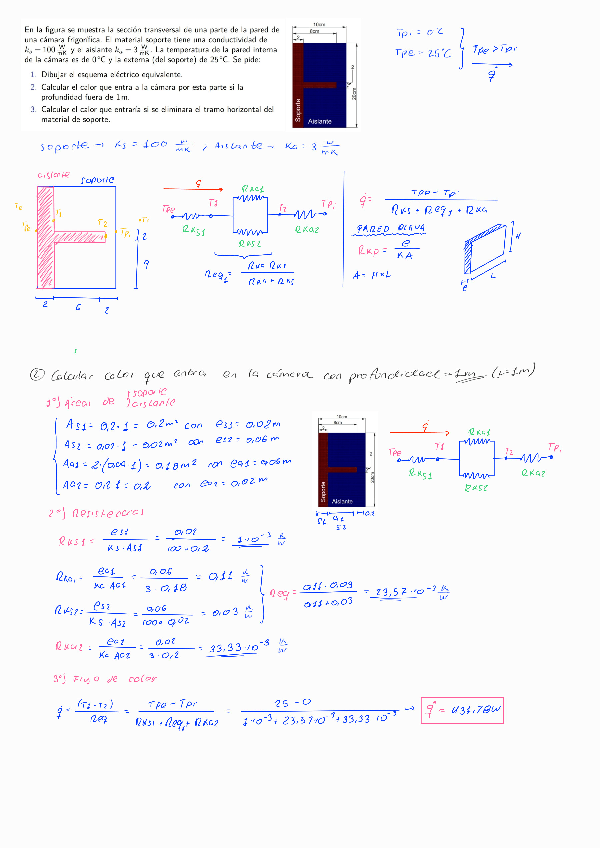 En la figura se muestra la sección transversal de una parte de la pared de
una cámara frigorífica. El material soporte tiene una conductividad de
ks = 100 W/mK y el aislante ka = 3 W/mK. La temperatura de la pared interna
de la cámara es de 0°C y la externa (del soporte) de 25°C. Se pide:
1. Dibujar el esquema eléctrico equivalente.
2. Calcular el calor que entra a la cámara por esta parte si la
profundidad fuera de 1m.
3. Calcular el calor que entraría si se eliminara el tramo horizontal del
material de soporte.
10cm
8cm
2
2
20cm
Soporte
Aislante
Tpi = 0°C
Tpe = 25°C
Tpe > Tpi
q̇
soporte → Ks = 100 W/mK , Aislante → Ka = 3 W/mK
aislante
soporte
T1
T2
Tpi
2
9
2 6 2
q̇
Tpe
RKS1
T1
RKA1
RKS2
T2
RKA2
Tpi
q̇ = (Tpe - Tpi) / (RKS1 + Req1 + RKA2)
PARED PLANA
RKP = e / KA
A = H x L
e
L
H
② Calcular calor que entra en la cámara con profundidad = 1m (L=1m)
1º) Áreas de soporte aislante
AS1 = 0,2 · 1 = 0,2 m² con eS1 = 0,02 m
AS2 = 0,02 · 1 = 0,02 m² con eS2 = 0,06 m
AA1 = 2·(0,09·1) = 0,18 m² con eA1 = 0,06 m
AA2 = 0,2·1 = 0,2 con eA2 = 0,02 m
10cm
8cm
2
2
20cm
Soporte
Aislante
q̇
Tpe
RKS1
T1
RKA1
RKS2
T2
RKA2
Tpi
2º) Resistencias
RKS1 = eS1 / (KS · AS1) = 0,02 / (100 · 0,2) = 1·10⁻³ K/W
RKA1 = eA1 / (Ka · AA1) = 0,06 / (3 · 0,18) = 0,11 K/W
RKS2 = eS2 / (KS · AS2) = 0,06 / (100 · 0,02) = 0,03 K/W
Req = (0,11 · 0,03) / (0,11 + 0,03) = 23,57·10⁻³ K/W
RKA2 = eA2 / (Ka · AA2) = 0,02 / (3 · 0,2) = 33,33·10⁻³ K/W
3º) Flujo de calor
q̇ = (T1 - T2) / Req = (Tpe - Tpi) / (RKS1 + Req1 + RKA2) = (25 - 0) / (1·10⁻³ + 23,57·10⁻³ + 33,33·10⁻³) → q̇ = 431,78 W